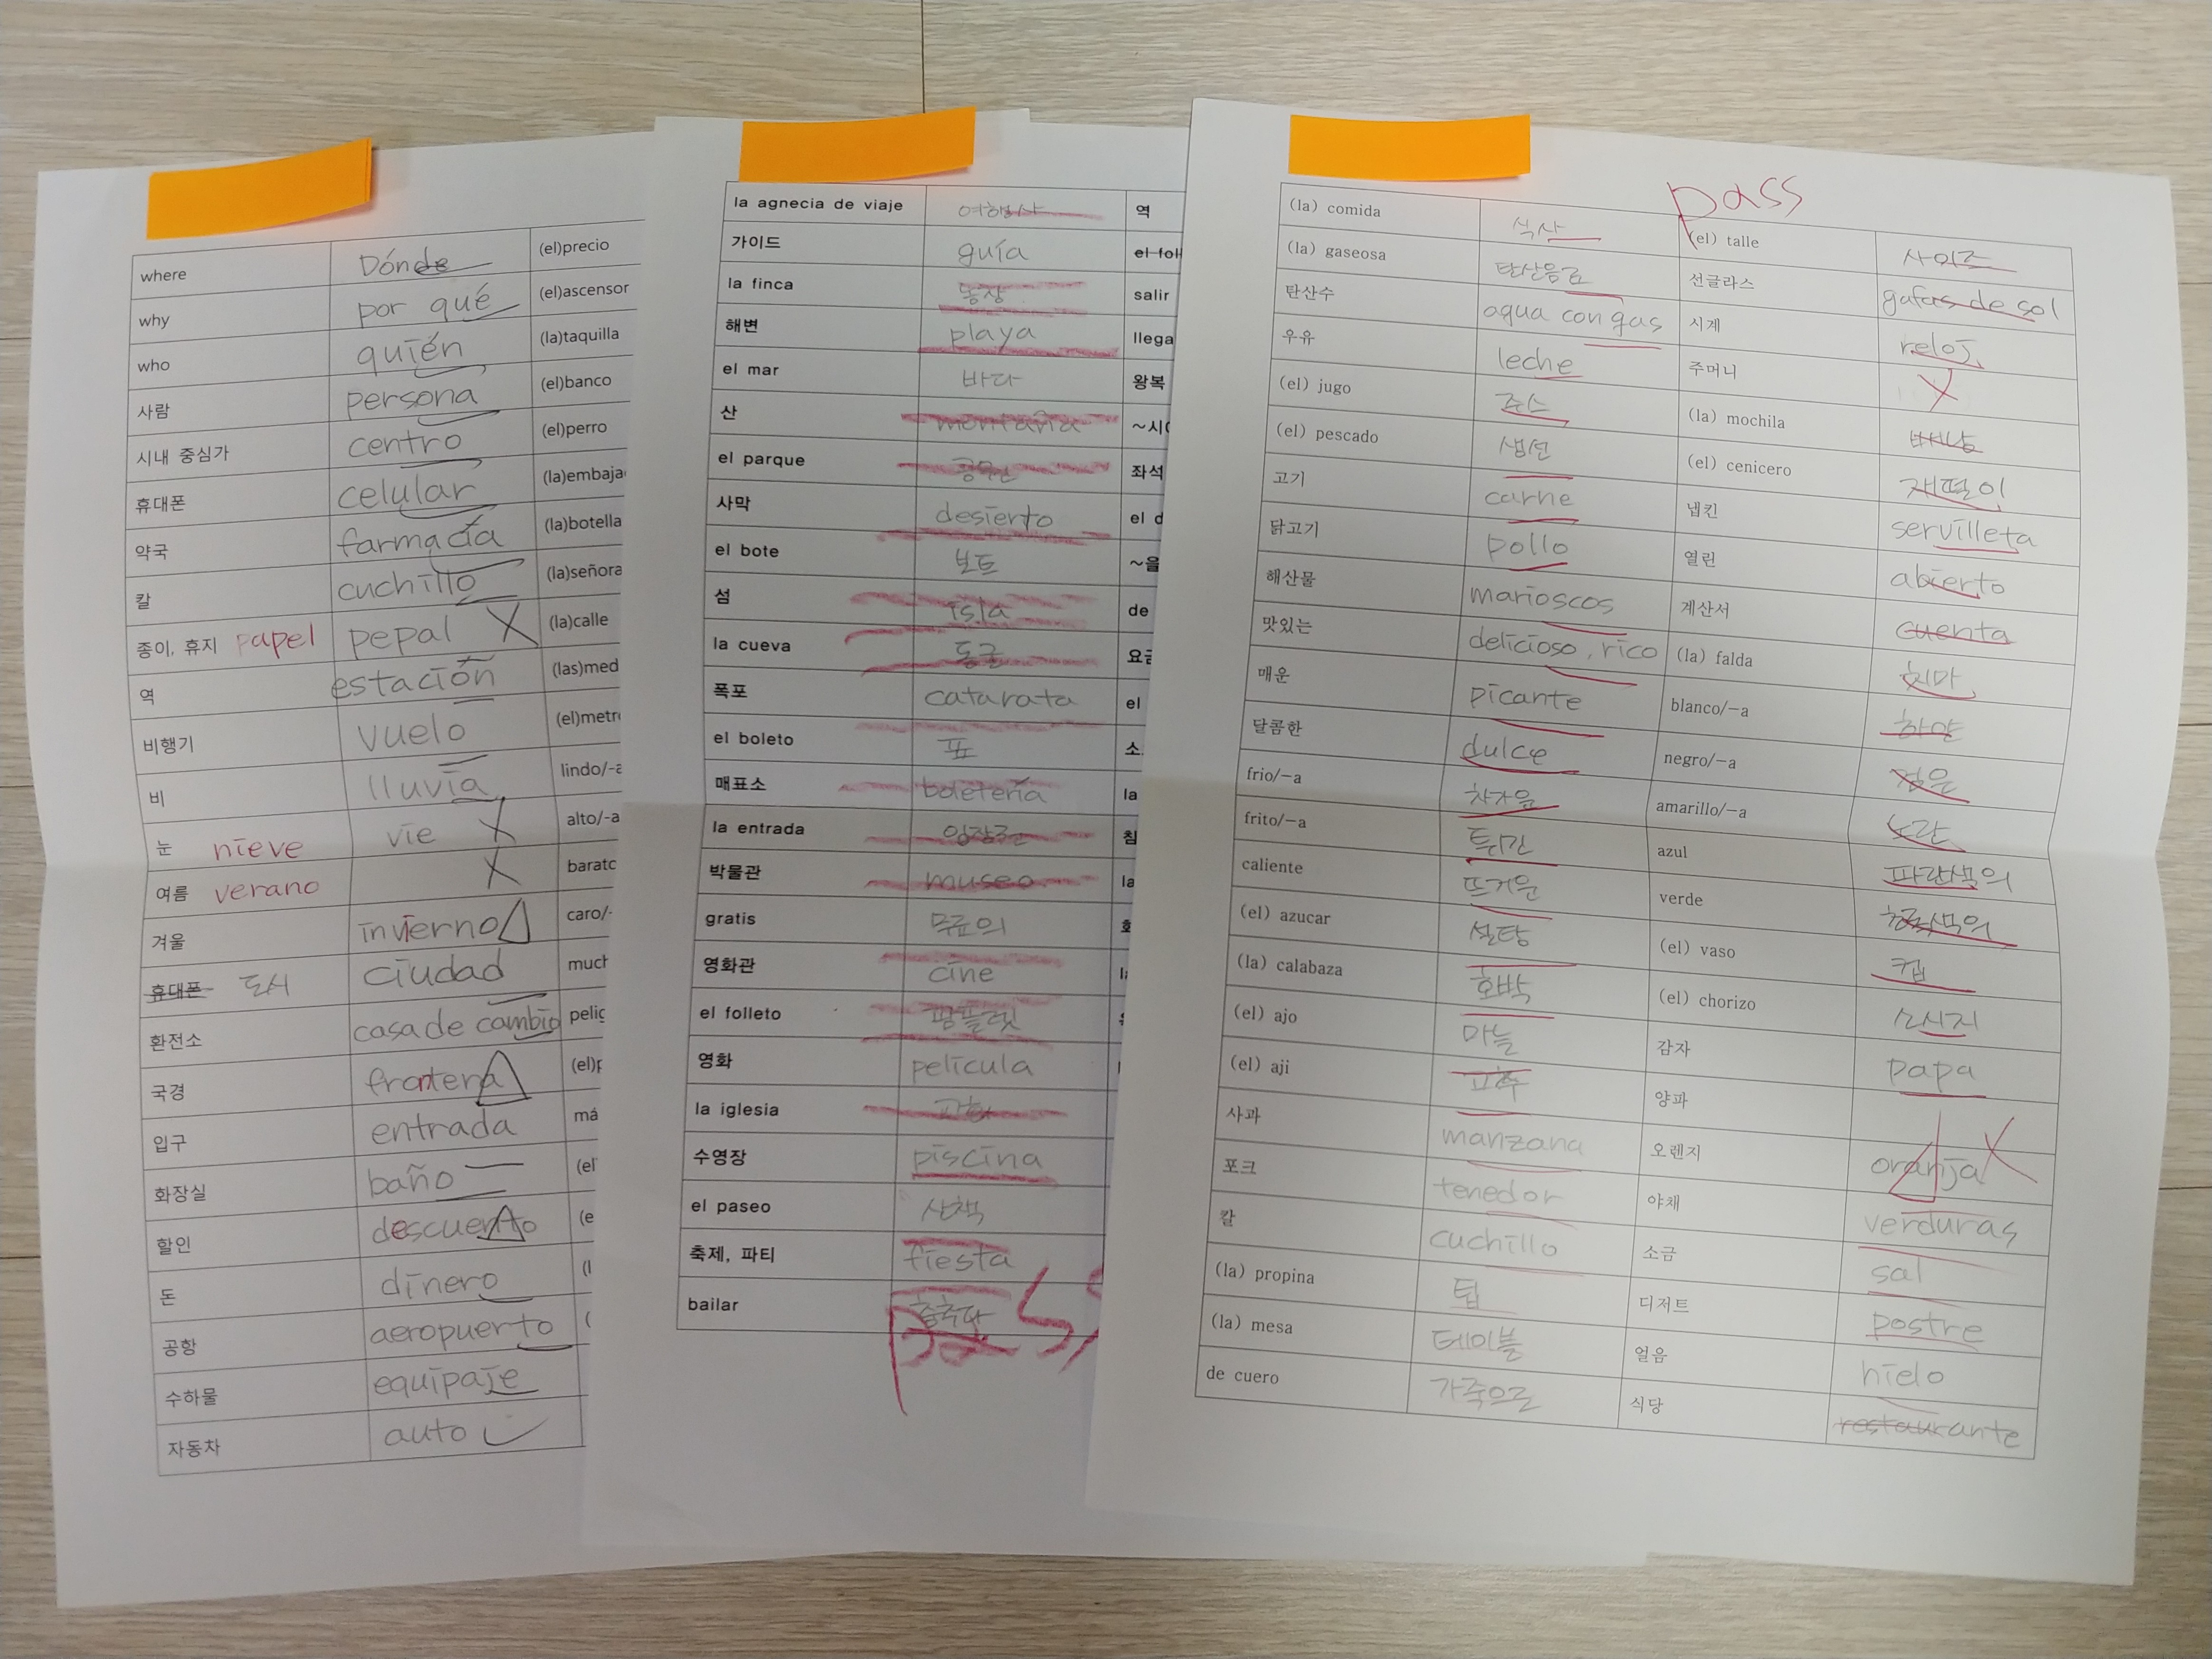 where Dónde (el)precio
why por qué (el)ascensor
who quién (la)taquilla
사람 persona (el)banco
시내 중심가 centro (el)perro
휴대폰 celular (la)embaja
약국 farmacia (la)botella
칼 cuchillo (la)señora
종이, 휴지 papel pepal X (la)calle
역 estación (las)med
비행기 vuelo (el)metr
비 lluvia lindo/-a
눈 nieve vie X alto/-a
여름 verano X barato
겨울 invierno caro/-
휴대폰 도시 ciudad much
환전소 casa de cambio pelig
국경 frontera (el)p
입구 entrada má
화장실 baño (el)
할인 descuento (e
돈 dinero (l
공항 aeropuerto (
수하물 equipaje
자동차 auto
la agnecia de viaje 여행사 역
가이드 guía el fol
la finca 농장 salir
해변 playa llega
el mar 바다 왕복
산 montaña ~시
el parque 공원 좌석
사막 desierto el d
el bote 보트 ~을
섬 isla de
la cueva 동굴 요금
폭포 catarata el
el boleto 표 소
매표소 boletería la
la entrada 입장권 침
박물관 museo la
gratis 무료의
영화관 cine
el folleto 팜플렛
영화 película
la iglesia 교회
수영장 piscina
el paseo 산책
축제, 파티 fiesta
bailar 춤추다
pass
pass
(la) comida 식사 (el) talle 사이즈
(la) gaseosa 탄산음료 선글라스 gafas de sol
탄산수 agua con gas 시계 reloj
우유 leche 주머니 X
(el) jugo 주스 (la) mochila 배낭
(el) pescado 생선 (el) cenicero 재떨이
고기 carne 냅킨 servilleta
닭고기 pollo 열린 abierto
해산물 marioscos 계산서 cuenta
맛있는 delicioso, rico (la) falda 치마
매운 picante blanco/-a 하얀
달콤한 dulce negro/-a 검은
frio/-a 차가운 amarillo/-a 노란
frito/-a 튀긴 azul 파란색의
caliente 뜨거운 verde 초록색의
(el) azucar 설탕 (el) vaso 컵
(la) calabaza 호박 (el) chorizo 소시지
(el) ajo 마늘 감자 papa
(el) aji 고추 양파 X
사과 manzana 오렌지 oranja
포크 tenedor 야채 verduras
칼 cuchillo 소금 sal
(la) propina 팁 디저트 postre
(la) mesa 테이블 얼음 hielo
de cuero 가죽으로 식당 restaurante